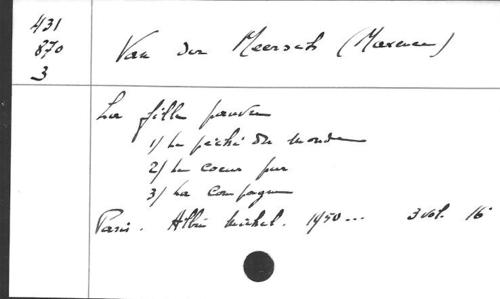 431
870
3
Van der Meersch (Maxence)
La fille pauvre
1/ Le péché du monde
2/ Le coeur pur
3/ La compagne
Paris. Albin Michel. 1950... 3 vol. 16°